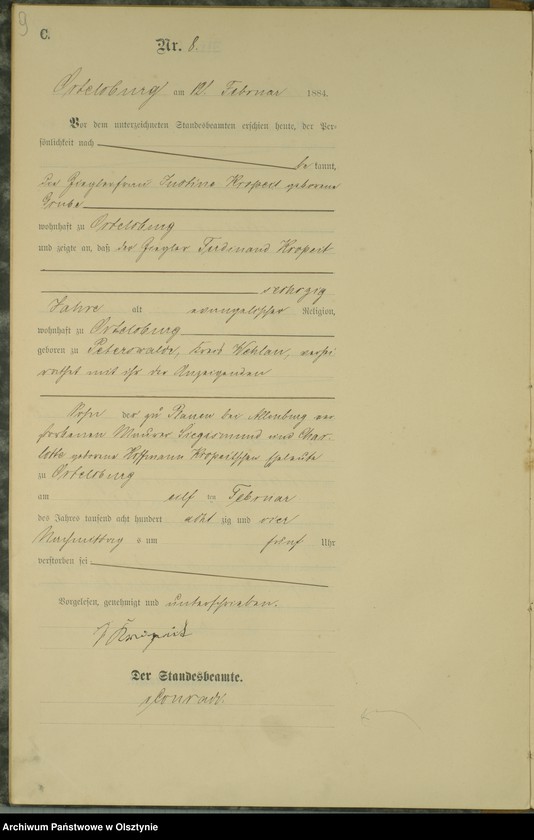 9
C.
Nr. 8.
Ortelsburg am 12. Februar 1884.
Vor dem unterzeichneten Standesbeamten erschien heute, der Per-
sönlichkeit nach
bekannt,
die Zieglerfrau Justine Kropeit geborene
Grube
wohnhaft zu Ortelsburg
und zeigte an, daß der Ziegler Ferdinand Kropeit
sechszig
Jahre alt evangelischer Religion,
wohnhaft zu Ortelsburg
geboren zu Peterswalde, Kreis Wehlau, verhei-
rathet mit ihr der Anzeigenden
Sohn der zu Plauen bei Allenburg ver-
storbenen Maurer Siegesmund und Char-
lotte geborene Hoffmann Kropeitschen Eheleute
zu Ortelsburg
am elf ten Februar
des Jahres tausend acht hundert acht zig und vier
Nachmittag s um fünf Uhr
verstorben sei
Vorgelesen, genehmigt und unterschrieben.
J Kropeit
Der Standesbeamte.
Conrad.
Archiwum Państwowe w Olsztynie